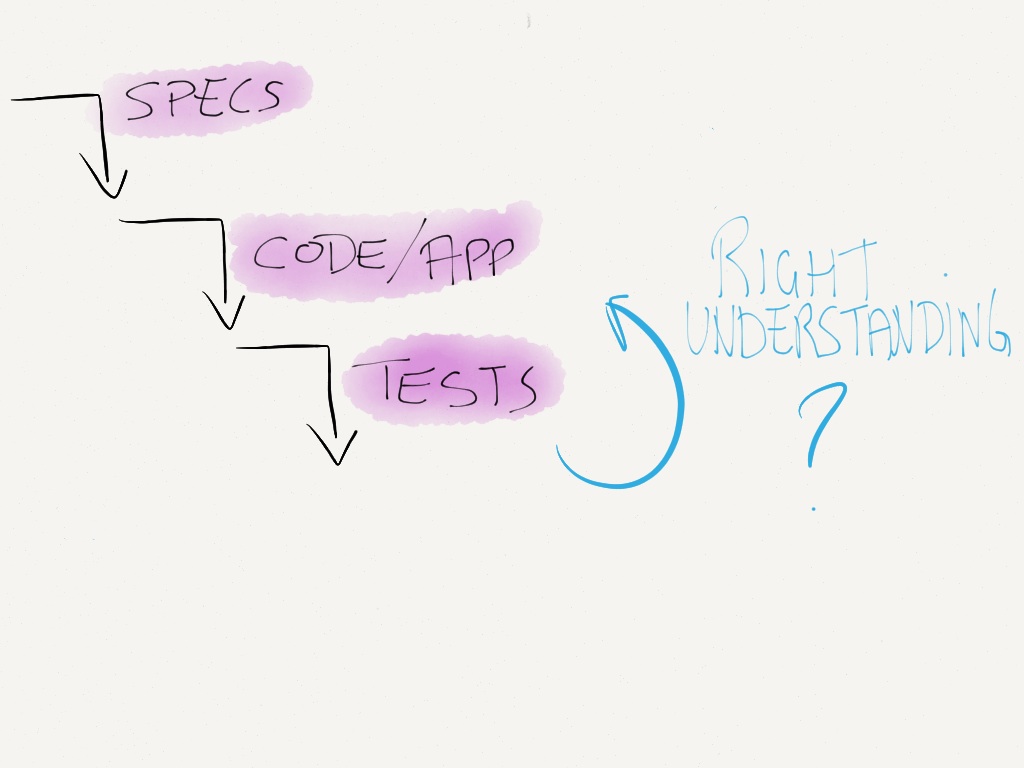 SPECS
CODE/APP
TESTS
RIGHT
UNDERSTANDING
?